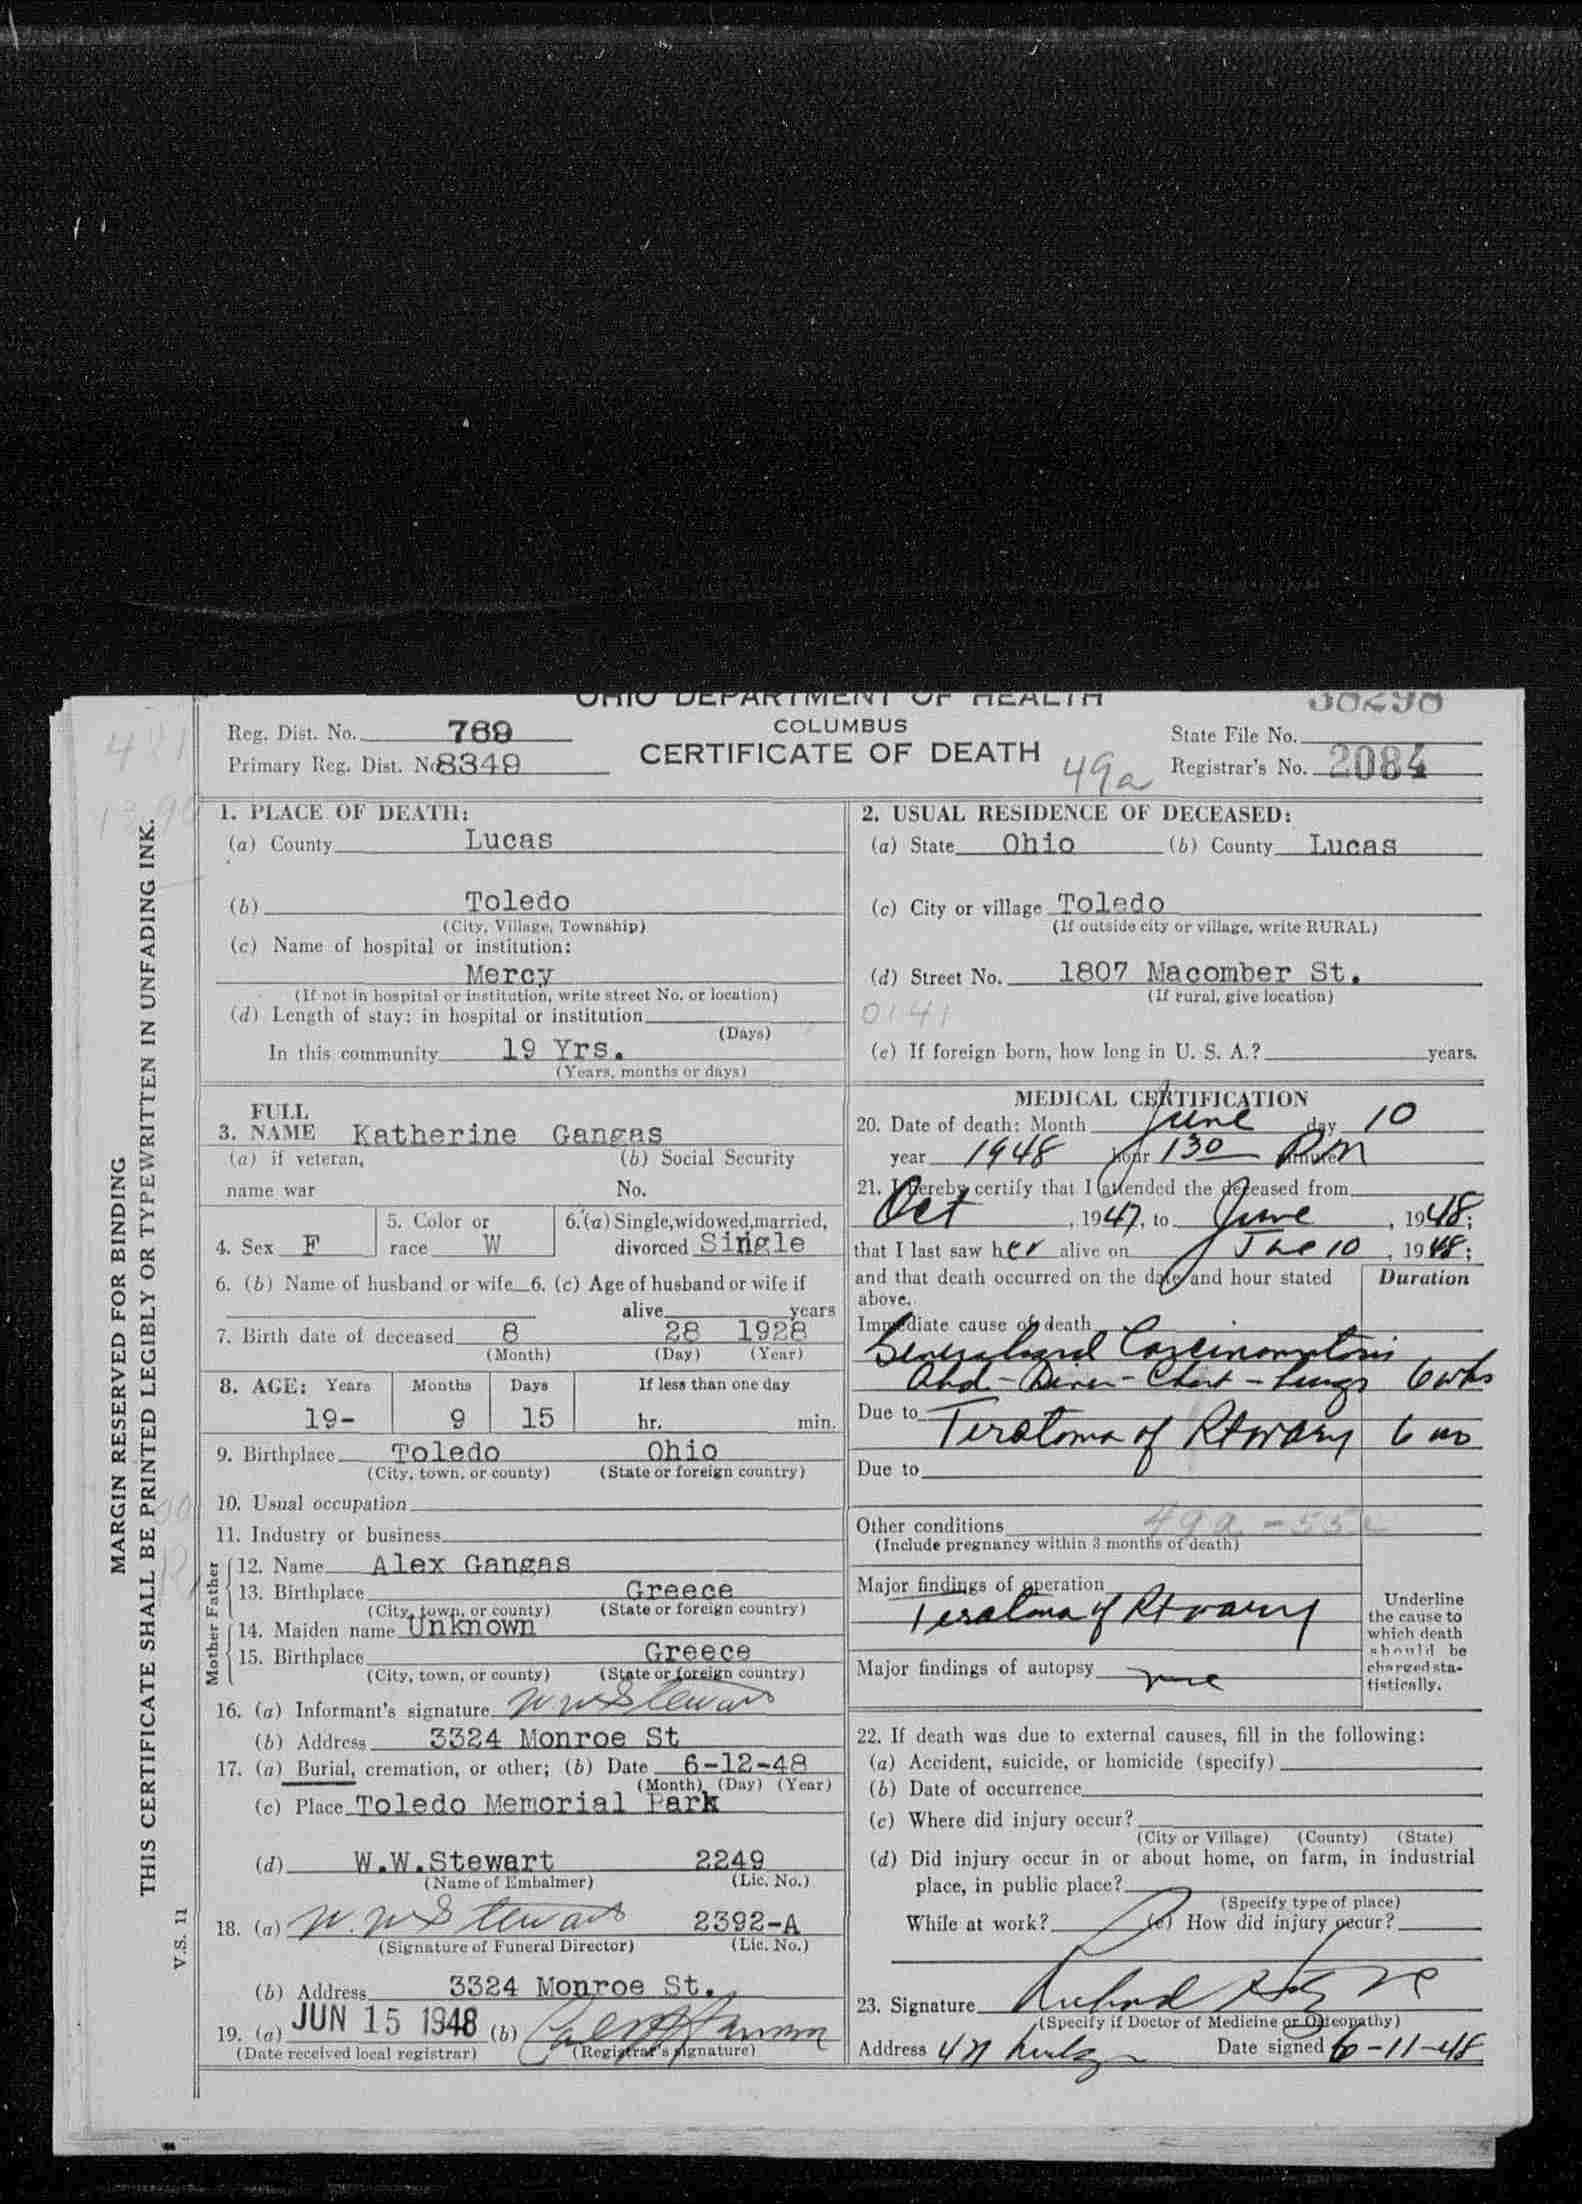 OHIO DEPARTMENT OF HEALTH
COLUMBUS
CERTIFICATE OF DEATH
Reg. Dist. No. 769
Primary Reg. Dist. No 8349
49a
38298
State File No.
Registrar's No. 2084
MARGIN RESERVED FOR BINDING
THIS CERTIFICATE SHALL BE PRINTED LEGIBLY OR TYPEWRITTEN IN UNFADING INK.
V.S. 11
1. PLACE OF DEATH:
(a) County Lucas
(b) Toledo
(City, Village, Township)
(c) Name of hospital or institution:
Mercy
(If not in hospital or institution, write street No. or location)
(d) Length of stay: in hospital or institution
(Days)
In this community 19 Yrs.
(Years, months or days)
2. USUAL RESIDENCE OF DECEASED:
(a) State Ohio (b) County Lucas
(c) City or village Toledo
(If outside city or village, write RURAL)
(d) Street No. 1807 Macomber St.
(If rural, give location)
0141
(e) If foreign born, how long in U. S. A.? years.
3. FULL NAME Katherine Gangas
(a) if veteran, (b) Social Security
name war No.
4. Sex F 5. Color or race W 6. (a) Single, widowed, married, divorced Single
6. (b) Name of husband or wife 6. (c) Age of husband or wife if
alive years
7. Birth date of deceased 8 28 1928
(Month) (Day) (Year)
8. AGE: Years Months Days If less than one day
19- 9 15 hr. min.
9. Birthplace Toledo Ohio
(City, town, or county) (State or foreign country)
10. Usual occupation
11. Industry or business
Father
12. Name Alex Gangas
13. Birthplace Greece
(City, town, or county) (State or foreign country)
Mother
14. Maiden name Unknown
15. Birthplace Greece
(City, town, or county) (State or foreign country)
16. (a) Informant's signature W W Stewart
(b) Address 3324 Monroe St
17. (a) Burial, cremation, or other; (b) Date 6-12-48
(Month) (Day) (Year)
(c) Place Toledo Memorial Park
(d) W.W.Stewart 2249
(Name of Embalmer) (Lic. No.)
18. (a) W. W Stewart 2392-A
(Signature of Funeral Director) (Lic. No.)
(b) Address 3324 Monroe St.
19. (a) JUN 15 1948 (b)
(Date received local registrar) (Registrar's signature)
MEDICAL CERTIFICATION
20. Date of death: Month June day 10
year 1948 hour 130 minute PM
21. I hereby certify that I attended the deceased from
Oct, 1947, to June, 1948;
that I last saw her alive on June 10, 1948;
and that death occurred on the date and hour stated above.
Duration
Immediate cause of death
Generalized Carcinomatosis
Abd - Liver - Chest - Lungs 6 wks
Due to Teratoma of Rt ovary 6 mo
Due to
Other conditions 49a - 55
(Include pregnancy within 3 months of death)
Major findings of operation
Teratoma of Rt ovary
Major findings of autopsy
Underline the cause to which death should be charged statistically.
22. If death was due to external causes, fill in the following:
(a) Accident, suicide, or homicide (specify)
(b) Date of occurrence
(c) Where did injury occur?
(City or Village) (County) (State)
(d) Did injury occur in or about home, on farm, in industrial
place, in public place?
(Specify type of place)
While at work? (e) How did injury occur?
23. Signature Richard
(Specify if Doctor of Medicine or Osteopathy)
Address Date signed 6-11-48